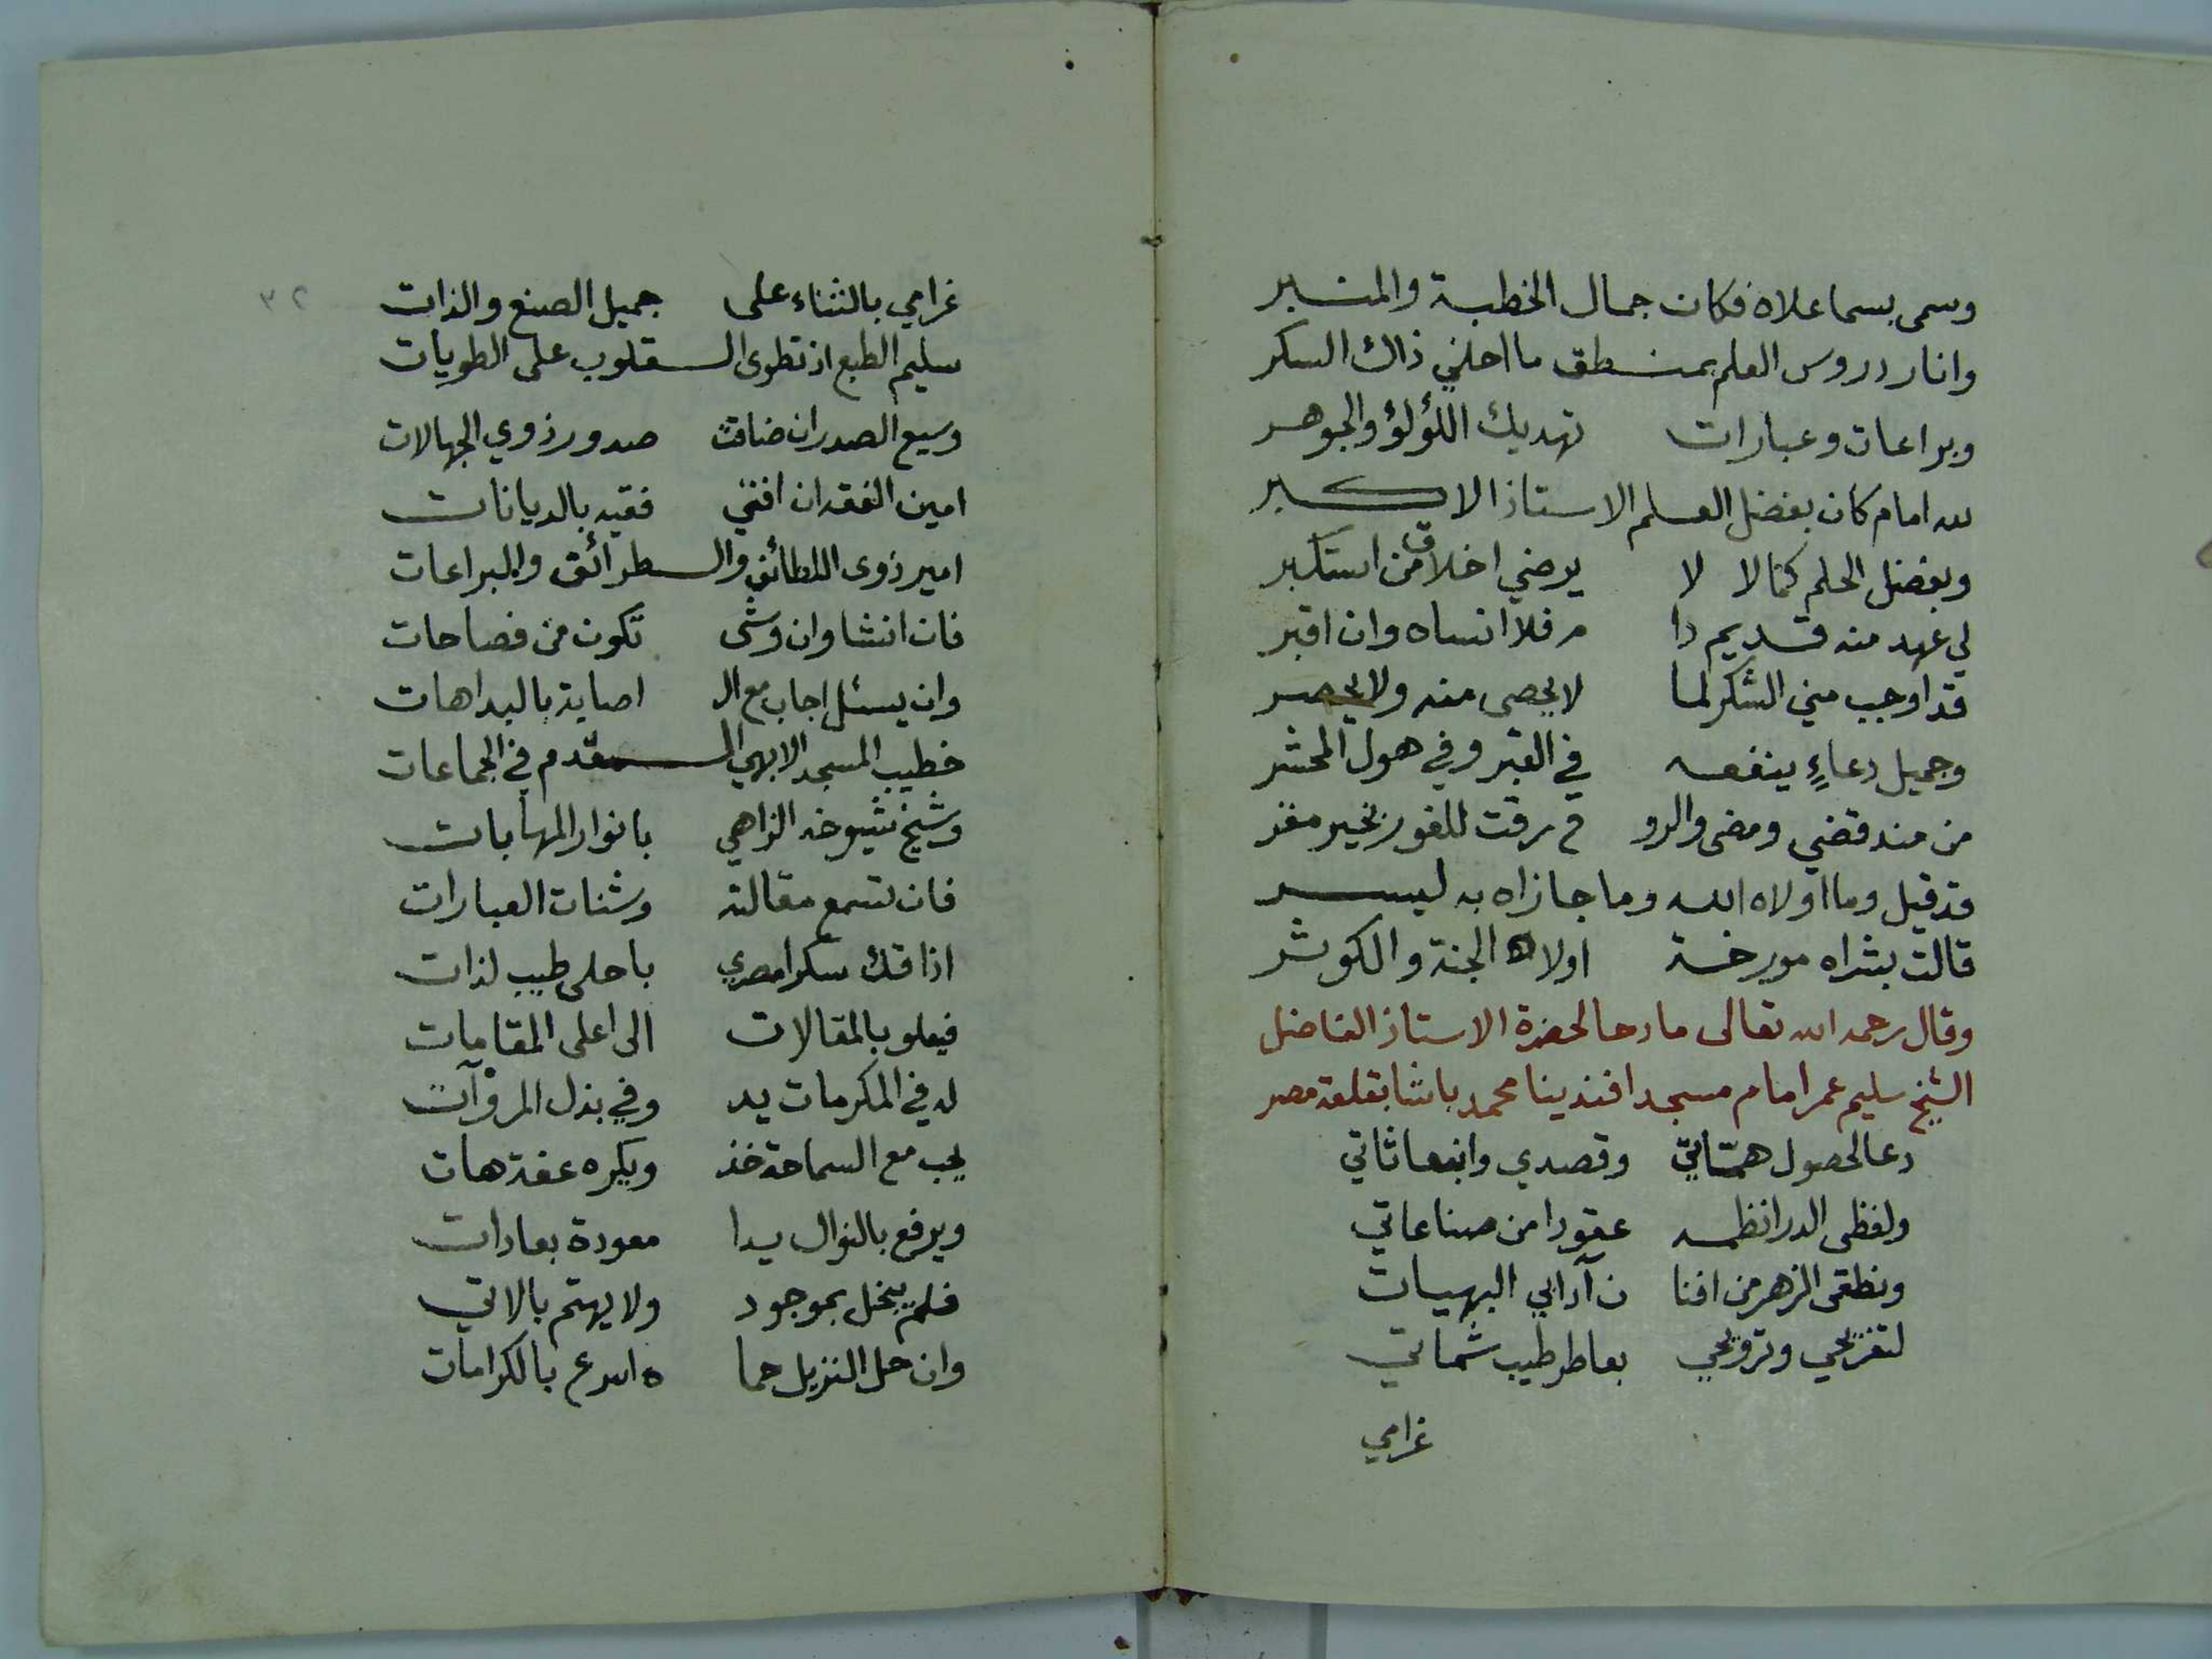 وسمى بسما علاه فكان جمال الخطبة والمنبر
وانار دروس العلم بمنطق ما احلني ذاك السكر
وبراعات وعبارات تهديك اللؤلؤ والجوهر
لله امام كان بفضل العلم الاستاذ الاكبر
وبفضل الحلم كمالا لا يرضي اخلاق من استكبر
لي عهد منه قديم دا م فلا انساه وان اقبر
قد اوجب مني الشكر لما لا يحصى منه ولا يحصر
وجميل دعاءٍ ينفعه في القبر وفي هول المحشر
من منذ قضي ومضى والرو ح رقت للفوز بخير مفر
قد قيل وما اولاه الله وما جازاه به ليسر
قالت بشراه مورخة اولاه الجنة والكوثر
وقال رحمه الله تعالى مادحا لحضرة الاستاذ الفاضل
الشيخ سليم عمر امام مسجد افندينا محمد باشا بقلعة مصر
دعا لحصول همّاتي وقصدي وانبعاثاتي
ولفظى الدر انظمه عقودا من صناعاتي
ونطقى الزهر من افنا ن آدابي البهيات
لتفريحي وترويحي بعاطر طيب شماتي
غرامي
٣٢
غرامي بالثناء على جميل الصنع والذات
سليم الطبع اذ تطوى القلوب على الطويات
وسيع الصدر ان ضاقت صدور ذوي الجهالات
امين الفقه ان افتي فقيه بالديانات
امير ذوى اللطائف والطرائق والبراعات
فان انشا وان وشى تكون من فصاحات
وان يسئل اجاب مع ال اصابة بالبداهات
خطيب المسجد الابهي المقدم في الجماعات
وشيخ شيوخه الزاهي بانوار المهابات
فان تسمع مقالته وشنات العبارات
اذاقك سكرا مصري باحلى طيب لذات
فيعلو بالمقالات الى اعلى المقامات
له في المكرمات يد وفي بذل المروآت
يحب مع السماحة خذ ويكره عفة هات
ويرفع بالنوال يدا معودة بعادات
فلم يبخل بموجود ولا يهتم بالاتي
وان حل النزيل حما ه اسرع بالكرامات